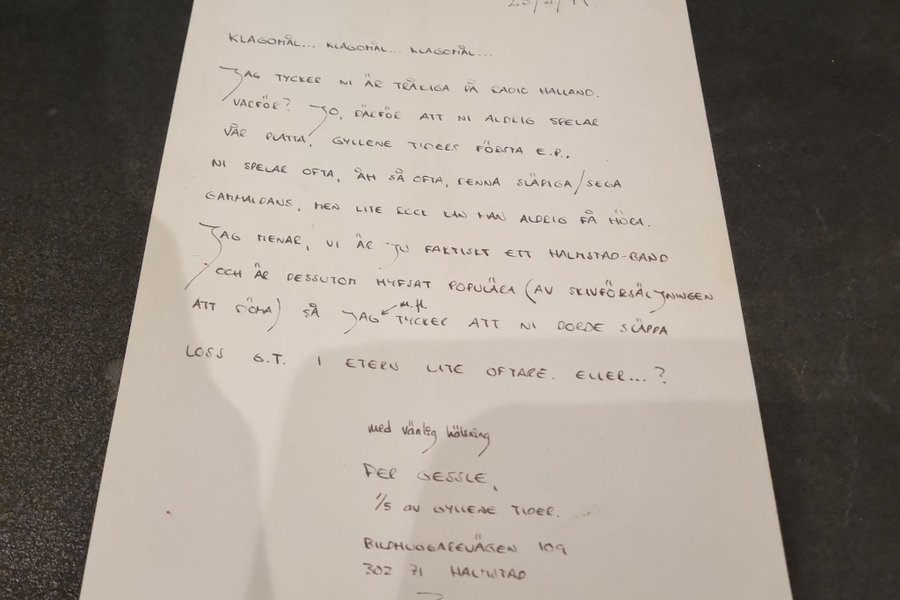 KLAGOMÅL... KLAGOMÅL... KLAGOMÅL...
JAG TYCKER NI ÄR TRÅLIGA PÅ RADIO HALLAND.
VARFÖR? JO, DÄRFÖR ATT NI ALDRIG SPELAR
VÅR PLATTA, GYLLENE TIDERS FÖRSTA E.P..
NI SPELAR OFTA, ÅH SÅ OFTA, DENNA SLÄPIGA/SEGA
GAMMALDANS, MEN LITE ROCK KAN MAN ALDRIG FÅ HÖRA.
JAG MENAR, VI ÄR JU FAKTISKT ETT HALMSTAD-BAND
OCH ÄR DESSUTOM HYFSAT POPULÄRA (AV SKIVFÖRSÄLJNINGEN
ATT DÖMA) SÅ JAG m.fl. TYCKER ATT NI BORDE SLÄPPA
LOSS G.T. I ETERN LITE OFTARE. ELLER...?
med vänlig hälsning
PER GESSLE,
1/5 AV GYLLENE TIDER.
BILDHUGGAREVÄGEN 109
302 71 HALMSTAD